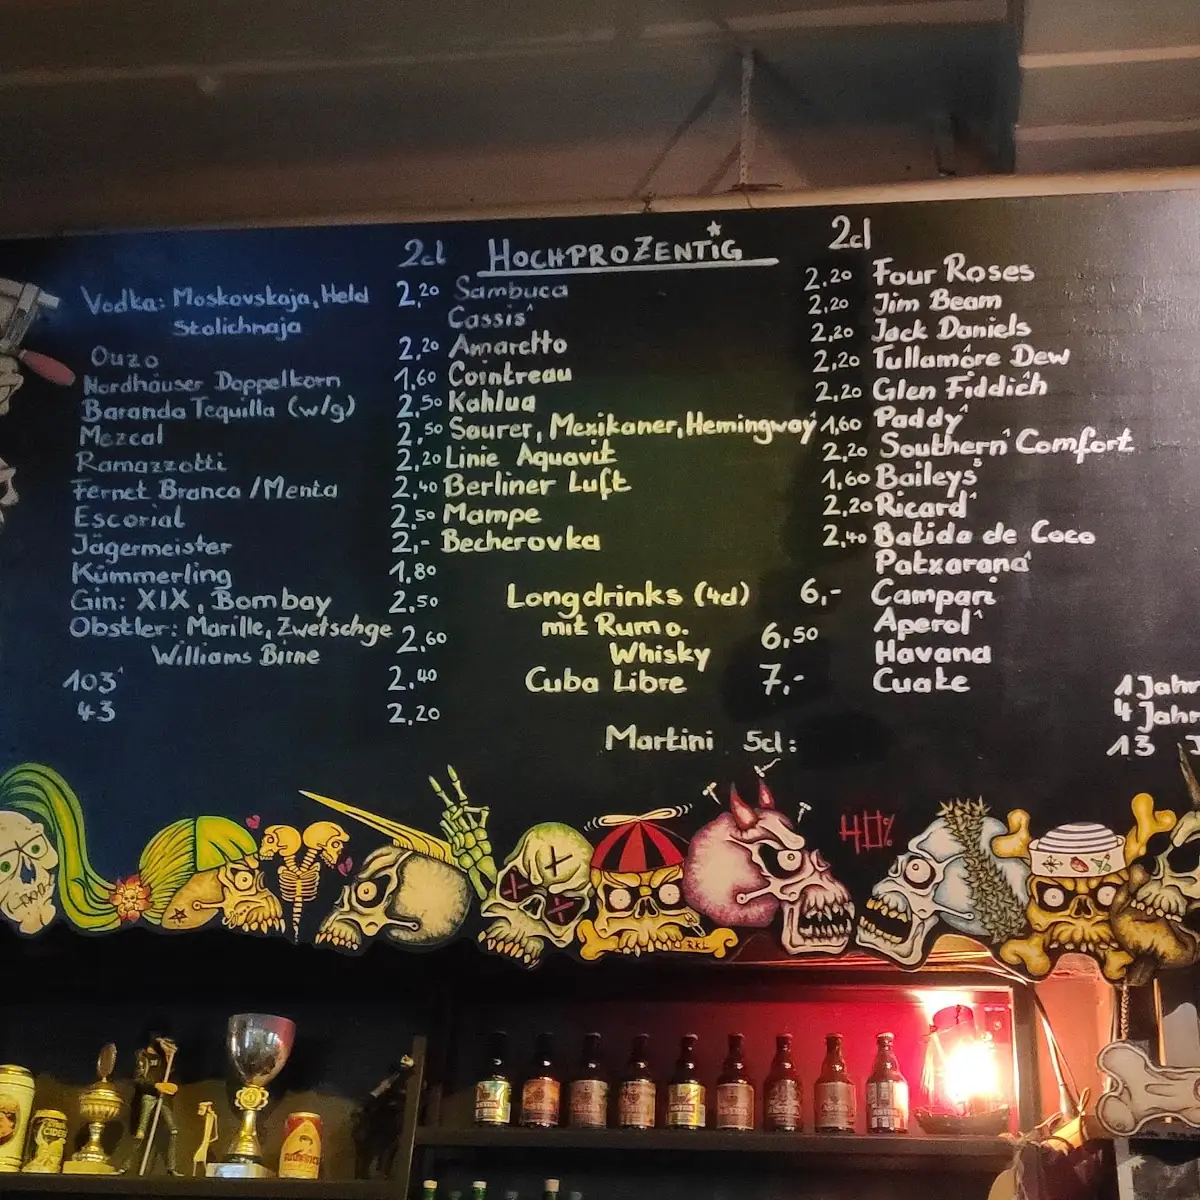 HOCHPROZENTIG
2cl
Vodka: Moskovskaja, Held 2,20
Stolichnaja
Ouzo 2,20
Nordhäuser Doppelkorn 1,60
Baranda Tequilla (w/g) 2,50
Mezcal 2,50
Ramazzotti 2,20
Fernet Branca / Menta 2,40
Escorial 2,50
Jägermeister 2,-
Kümmerling 1,80
Gin: XIX, Bombay 2,50
Obstler: Marille, Zwetschge 2,60
Williams Birne
103 2,40
43 2,20
2cl
Sambuca 2,20
Cassis 2,20
Amaretto 2,20
Cointreau 2,20
Kahlua 2,20
Saurer, Mexikaner, Hemingway 1,60
Linie Aquavit 2,20
Berliner Luft 1,60
Mampe 2,20
Becherovka 2,40
Longdrinks (4cl) 6,-
mit Rum o. 6,50
Whisky
Cuba Libre 7,-
Martini 5cl:
Four Roses
Jim Beam
Jack Daniels
Tullamore Dew
Glen Fiddich
Paddy
Southern Comfort
Baileys
Ricard
Batida de Coco
Patxarana
Campari
Aperol
Havana
Cuate
1 Jahr
4 Jahr
13 J
40%
RKL
ASTRA